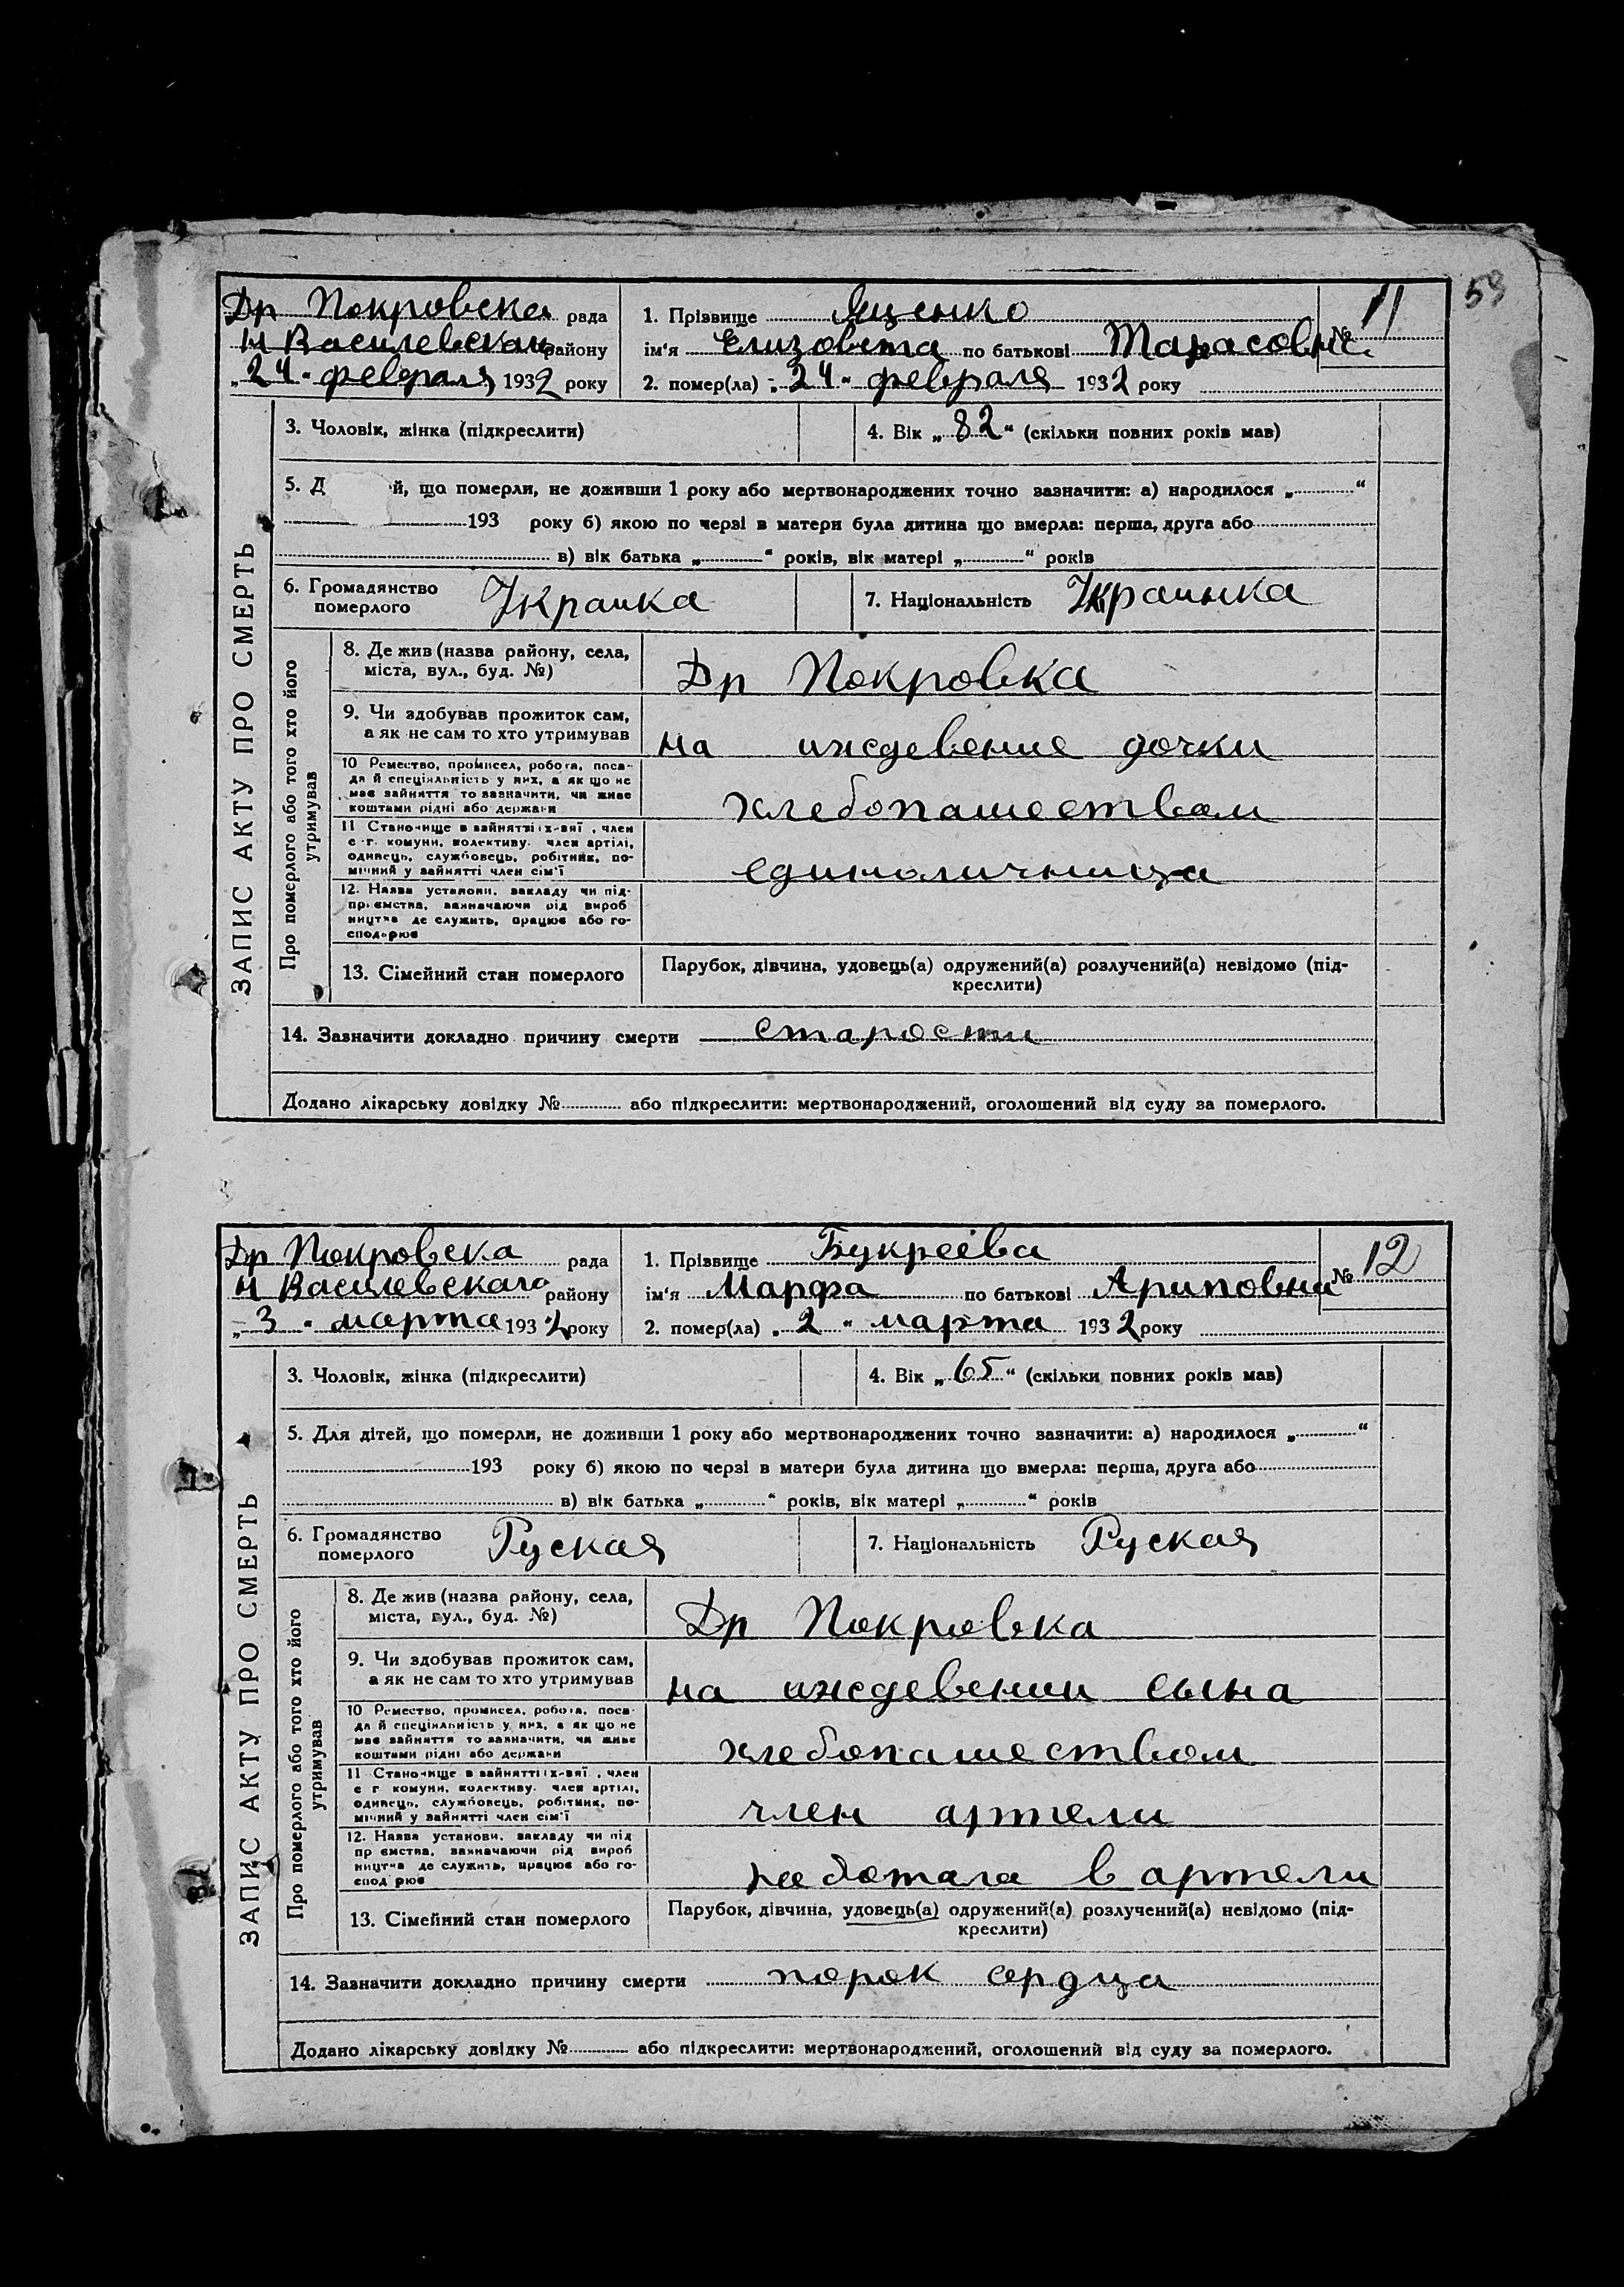 59
Др Покровска рада
Н Василевскаго району
„24“ февраля 1932 року
1. Прізвище Яценко
№ 11
ім‘я Елизовета по батькові Тарасовна
2. помер(ла) „24“ февраля 1932 року
ЗАПИС АКТУ ПРО СМЕРТЬ
3. Чоловік, жінка (підкреслити)
4. Вік „82“ (скільки повних років мав)
5. Д й, що померли, не доживши 1 року або мертвонароджених точно зазначити: а) народилося „ “
193 року б) якою по черзі в матери була дитина що вмерла: перша, друга або
в) вік батька „ “ років, вік матері „ “ років
6. Громадянство
померлого Украинка
7. Національність Украинка
Про померлого або того хто його
утримував
8. Де жив (назва району, села,
міста, вул., буд. №)
Др Покровка
9. Чи здобував прожиток сам,
а як не сам то хто утримував
на иждевение дочки
10 Ремество, промисел, робота, поса-
да й спеціяльність у них, а як що не
має зайняття то зазначити, чи живе
коштами рідні або держави
хлебопашеством
11 Становище в зайнятті , член
с г. комуни, колективу. член артілі,
одинець, службовець, робітник, по-
мічний у зайнятті член сім‘ї
единоличница
12. Назва установи, закладу чи під-
приємства, зазначаючи рід вироб
ництва де служить, працює або го-
сподарює
13. Сімейний стан померлого
Парубок, дівчина, удовець(а) одружений(а) розлучений(а) невідомо (під-
креслити)
14. Зазначити докладно причину смерти старости
Додано лікарську довідку № або підкреслити: мертвонароджений, оголошений від суду за померлого.
Др Покровска рада
Н Василевскаго району
„3“ марта 1932 року
1. Прізвище Букреева
№ 12
ім‘я Марфа по батькові Ариповна
2. помер(ла) „2“ марта 1932 року
ЗАПИС АКТУ ПРО СМЕРТЬ
3. Чоловік, жінка (підкреслити)
4. Вік „65“ (скільки повних років мав)
5. Для дітей, що померли, не доживши 1 року або мертвонароджених точно зазначити: а) народилося „ “
193 року б) якою по черзі в матери була дитина що вмерла: перша, друга або
в) вік батька „ “ років, вік матері „ “ років
6. Громадянство
померлого Руская
7. Національність Руская
Про померлого або того хто його
утримував
8. Де жив (назва району, села,
міста, вул., буд. №)
Др Покровка
9. Чи здобував прожиток сам,
а як не сам то хто утримував
на иждевении сына
10 Ремество, промисел, робота, поса-
да й спеціяльність у них, а як що не
має зайняття то зазначити, чи живе
коштами рідні або держави
хлебопашеством
11 Становище в зайнятті , член
с г комуни, колективу. член артілі,
одинець, службовець, робітник, по-
мічний у зайнятті член сім‘ї
член артели
12. Назва установи, закладу чи під
пр ємства, зазначаючи рід вироб
ництва де служить, працює або го-
спод рює
работала в артели
13. Сімейний стан померлого
Парубок, дівчина, удовець(а) одружений(а) розлучений(а) невідомо (під-
креслити)
14. Зазначити докладно причину смерти порок сердца
Додано лікарську довідку № або підкреслити: мертвонароджений, оголошений від суду за померлого.